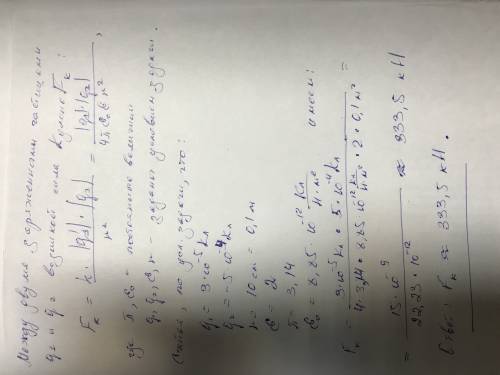 Между двумя заряженными частицами
q₁ и q₂ возникает сила Кулона Fк:
Fк = k · |q₁| · |q₂| / r² = |q₁| · |q₂| / 4πε₀ε r²,
где π, ε₀ – постоянные величины
q₁, q₂, ε, r – заданы условием задачи.
по усл. задачи, это:
q₁ = 3·10⁻⁵ Кл
q₂ = –5·10⁻⁴ Кл
r = 10 см = 0,1 м
ε = 2
π = 3,14
ε₀ = 8,85 · 10⁻¹² Кл / Н·м²
имеем:
Fк = 3·10⁻⁵ Кл · 5·10⁻⁴ Кл / 4·3,14 · 8,85·10⁻¹² Кл / Н·м² · 2 · 0,1 м² =
= 15·10⁻⁹ / 22,23·10⁻¹² ≈ 333,5 кН
Ответ: Fк ≈ 333,5 кН.